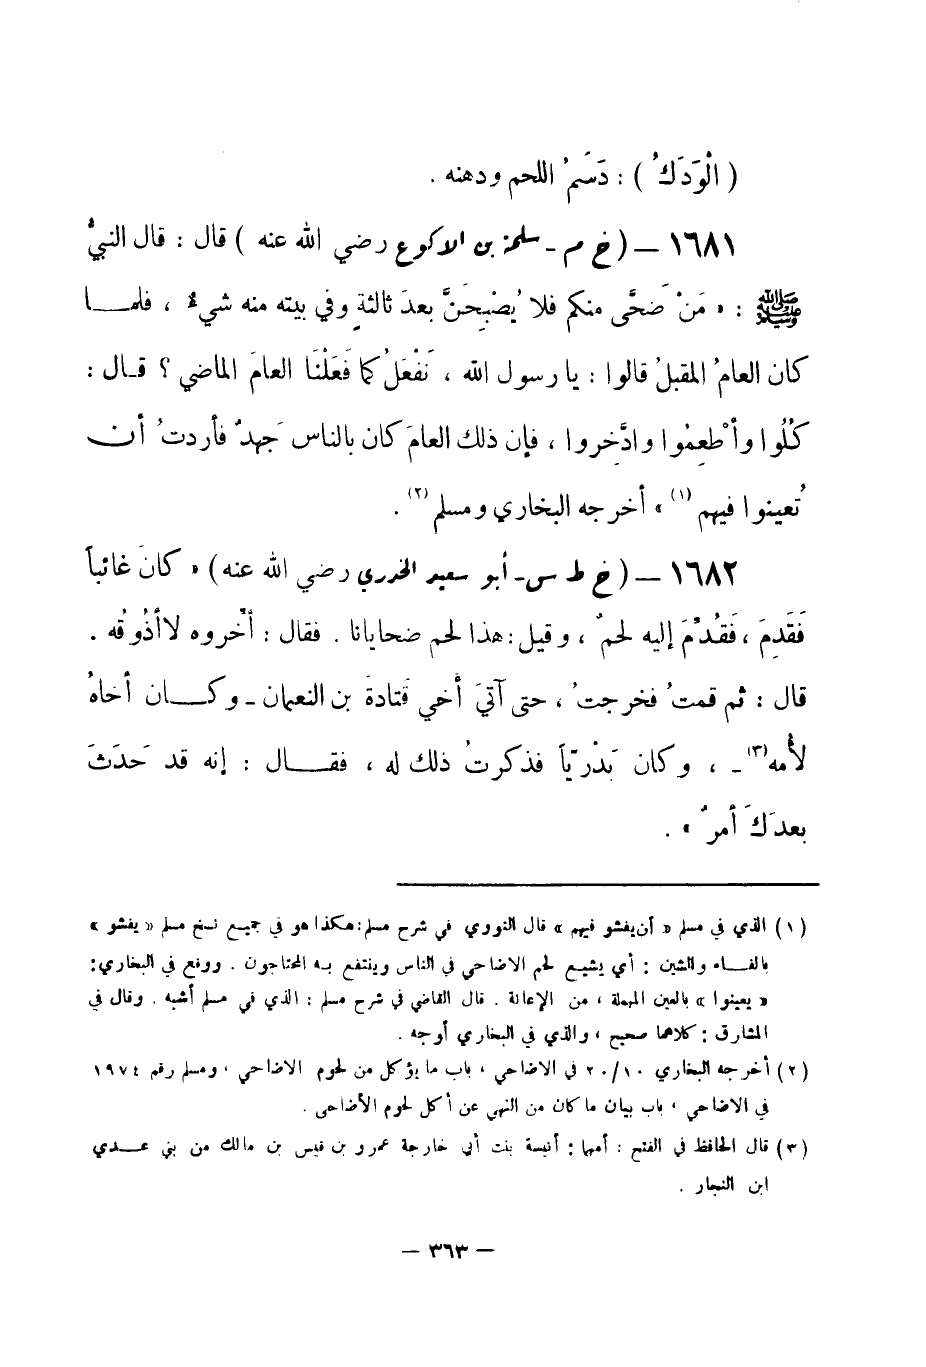 ( الْوَدَكُ ) : دَسَمُ اللحم ودهنه .
١٦٨١ – ( خ م - سلمة بن الأكوع رضي الله عنه ) قال : قال النبيُّ
ﷺ : « مَنْ ضَحَّى منكم فلا يُصْبِحَنَّ بعدَ ثالثةٍ وفي بيته منه شيءٌ ، فلمــا
كان العامُ المقبلُ قالوا : يا رسول الله ، نَفْعَلُ كما فَعَلْنَا العامَ الماضي ؟ قــال :
كُلُوا وأطْعِمُوا وادَّخِروا ، فإن ذلك العامَ كان بالناس جَهدٌ فأردتُ أن
تُعينوا فيهم (١) » أخرجه البخاري ومسلم (٢) .
١٦٨٢ – ( خ ط س - أبو سعيد الخدري رضي الله عنه ) « كانَ غائباً
فَقَدِمَ ، فَقُدِّمَ إليه لحمٌ ، وقيل : هذا لحم ضحايانا . فقال : أخِّروه لا أذُوقُه .
قال : ثم قمتُ فخرجتُ ، حتى آتيَ أخي قَتادةَ بن النعمان - وكــان أخاهُ
لأُمه (٣) - ، وكان بَدْريّاً فذكرتُ ذلك له ، فقــال : إنه قد حَدَثَ
بعدَكَ أمرٌ » .
(١) الذي في مسلم « أن يفشو فيهم » قال النووي في شرح مسلم : هكذا هو في جميع نسخ مسلم « يفشو »
بالفــاء والشين : أي يشيع لحم الاضاحي في الناس وينتفع به المحتاجون . ووقع في البخاري :
« يعينوا » بالعين المهملة ، من الإعانة . قال القاضي في شرح مسلم : الذي في مسلم أشبه . وقال في
المشارق : كلاهما صحيح ، والذي في البخاري أوجه .
(٢) أخرجه البخاري ٢٠/١٠ في الاضاحي ، باب ما يؤكل من لحوم الاضاحي ، ومسلم رقم ١٩٧٤
في الاضاحي ، باب بيان ما كان من النهي عن أكل لحوم الأضاحى .
(٣) قال الحافظ في الفتح : أمها : أنيسة بنت أبي خارجة عمرو بن قيس بن مالك من بني عــدي
ابن النجار .
– ٣٦٣ –